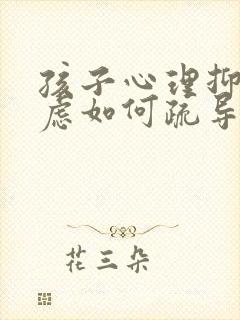 孩子心理抑
虑如何疏导
花三朵